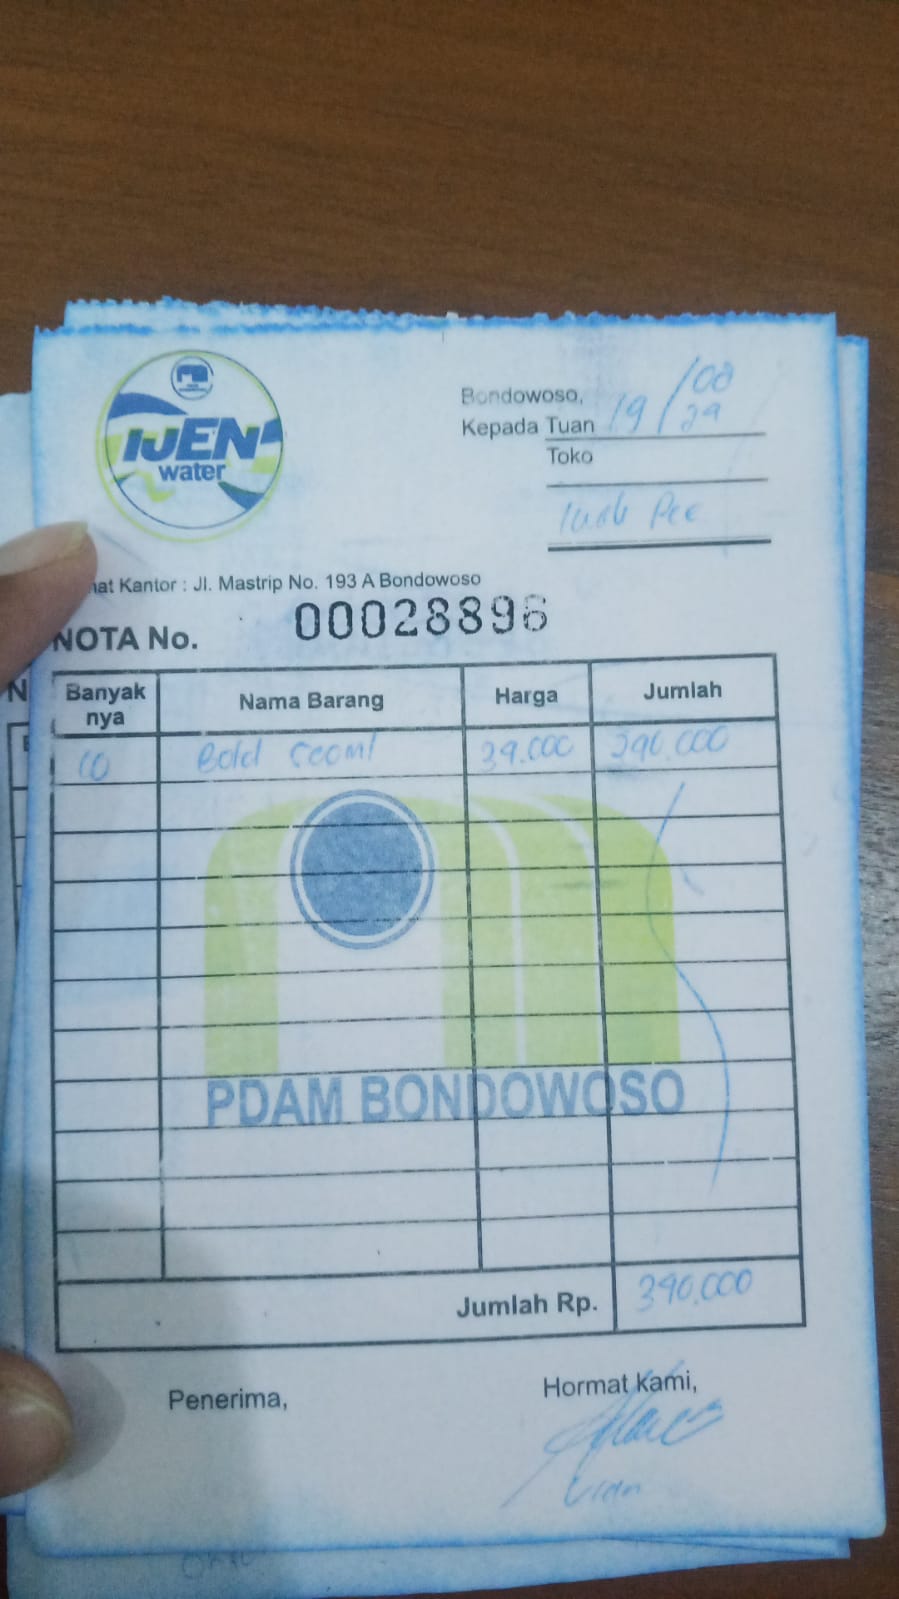 IJEN
water
Bondowoso, 19/08
Kepada Tuan
Toko
at Kantor : Jl. Mastrip No. 193 A Bondowoso
NOTA No. 00028896
Banyak nya Nama Barang Harga Jumlah
10 39.000 390.000
PDAM BONDOWOSO
Jumlah Rp. 390.000
Penerima, Hormat kami,